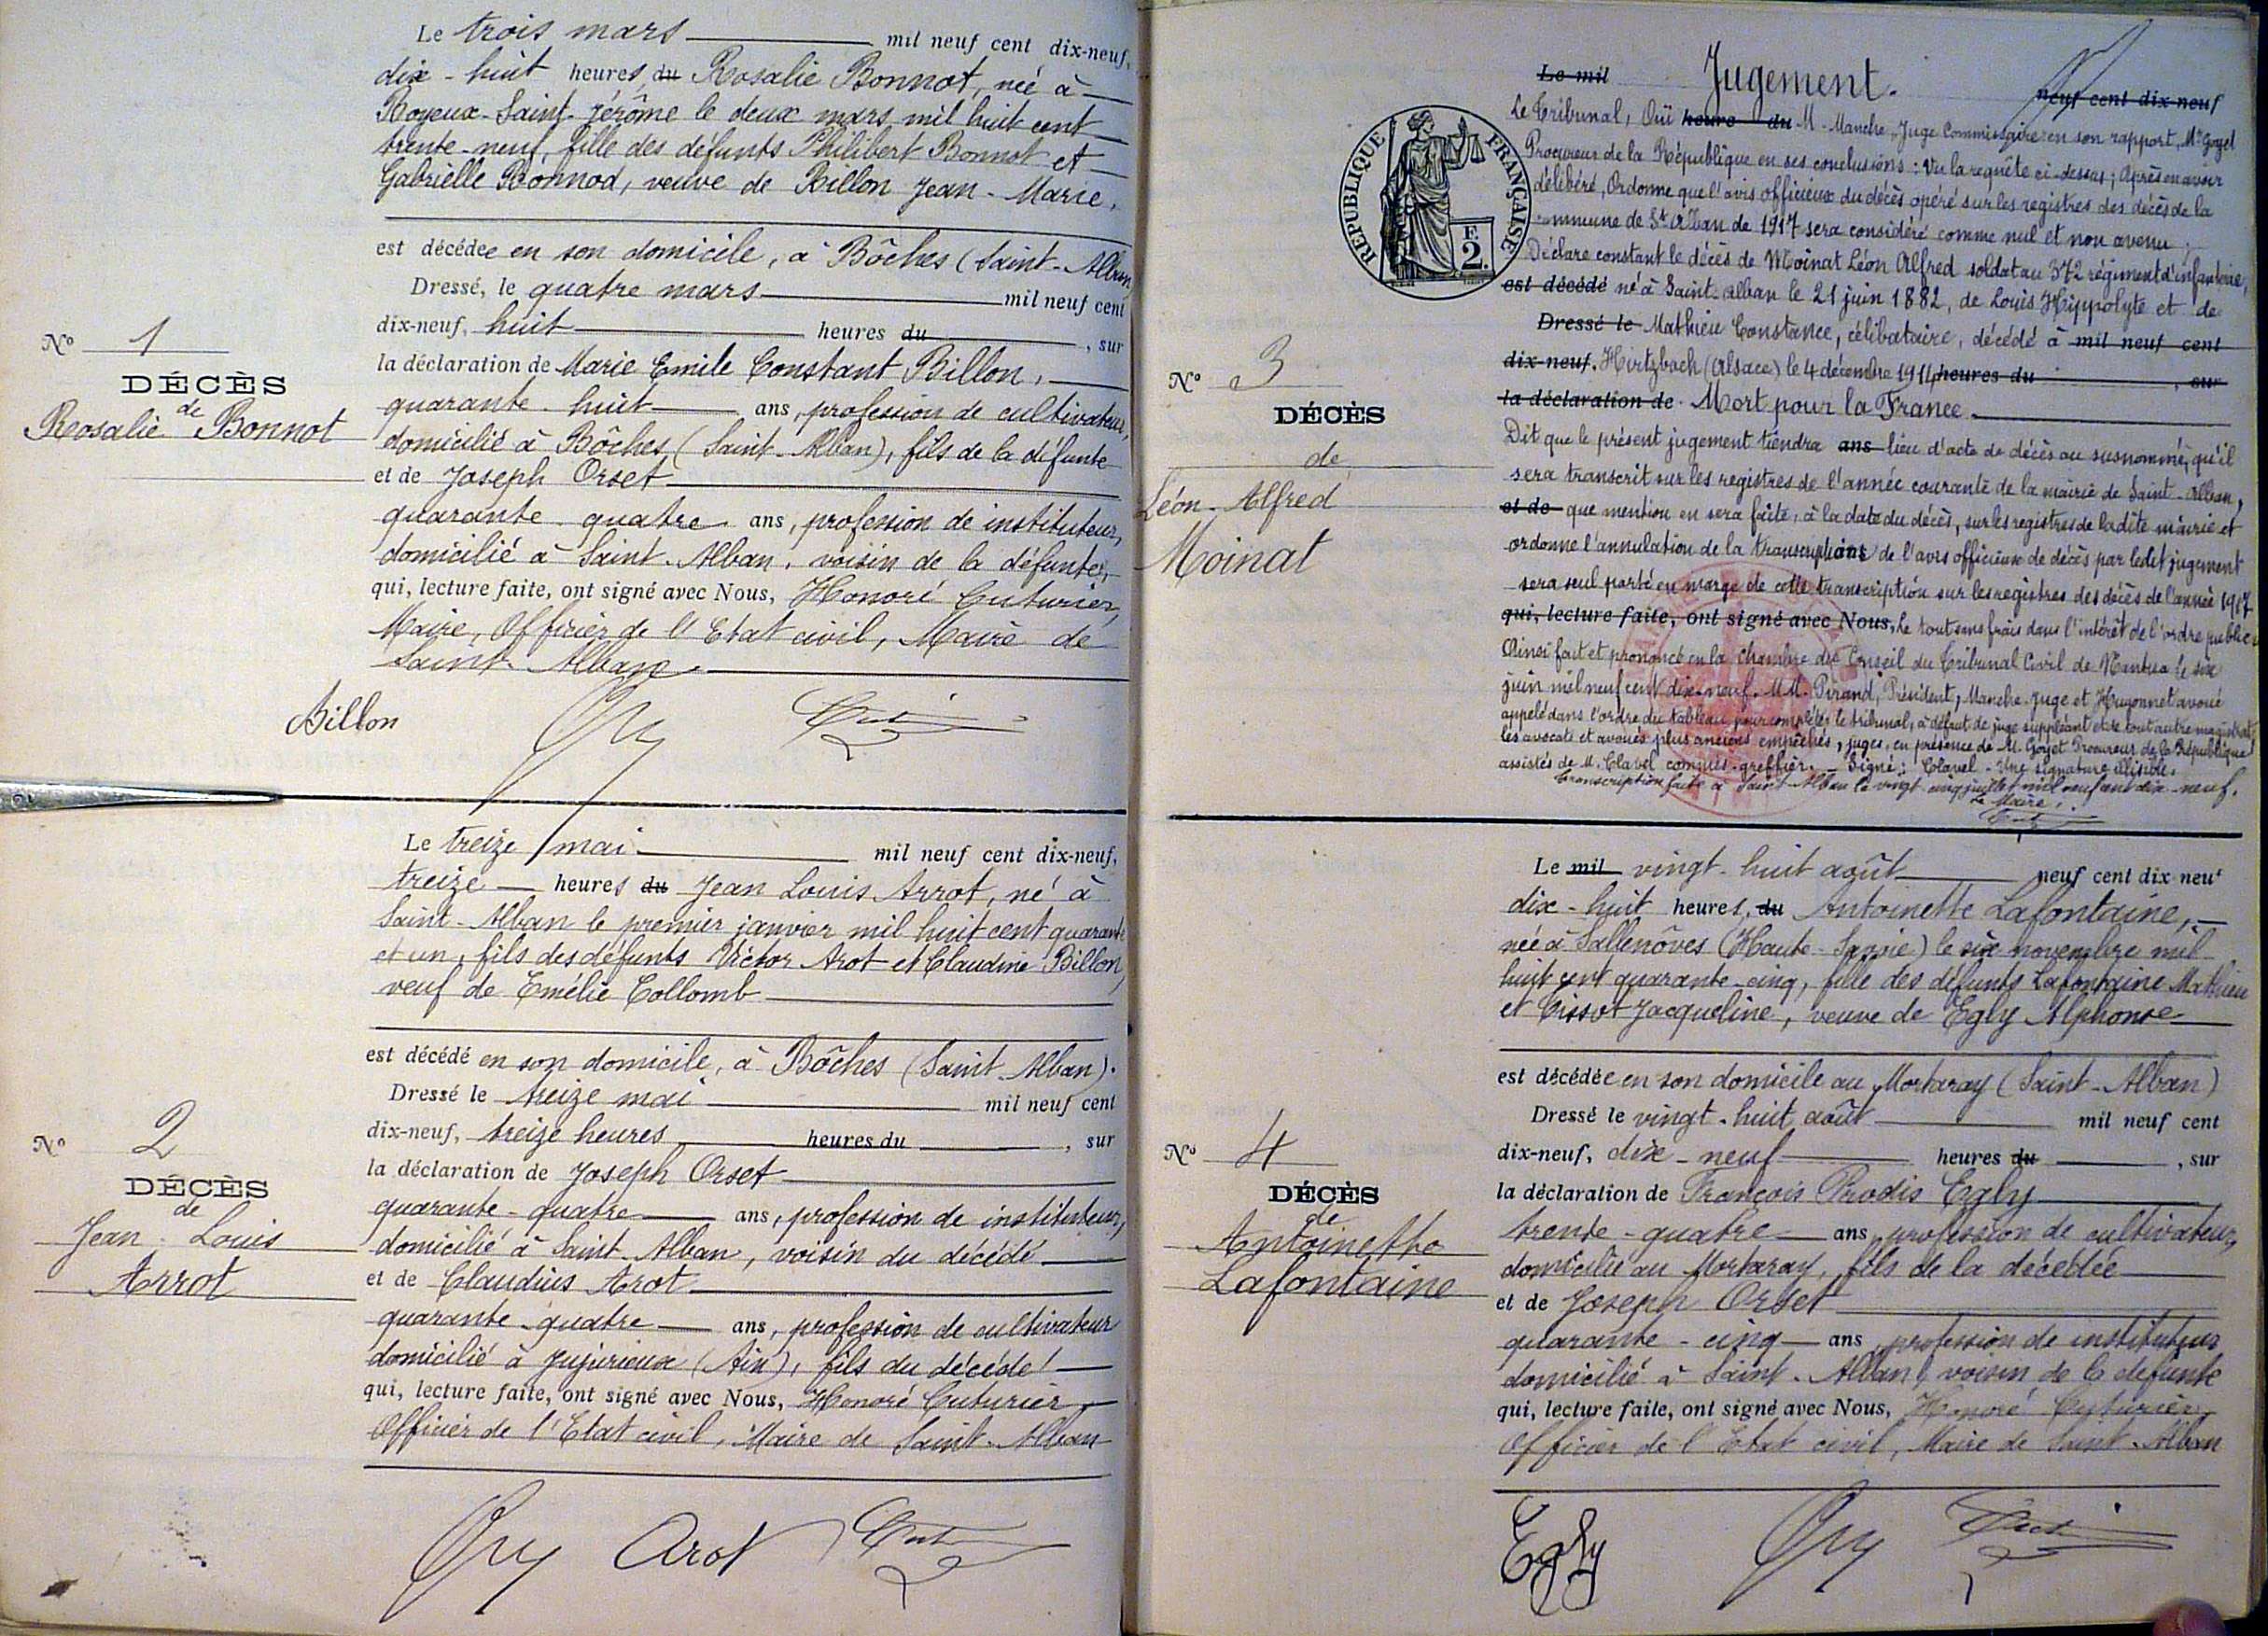 Le trois mars mil neuf cent dix-neuf,
dix-huit heures, du Rosalie Bonnot, née à
Boyeux-Saint-Jérôme le deux mars mil huit cent
trente-neuf, fille des défunts Philibert Bonnot et
Gabrielle Bonnod, veuve de Billon Jean-Marie,
est décédée en son domicile, à Bôches (Saint-Alban
Dressé, le quatre mars mil neuf cent
dix-neuf, huit heures du , sur
la déclaration de Marie Emile Constant Billon,
quarante-huit ans, profession de cultivateur,
domicilié à Bôches (Saint-Alban), fils de la défunte
et de Joseph Orset
quarante-quatre ans, profession de instituteur,
domicilié à Saint-Alban, voisin de la défunte,
qui, lecture faite, ont signé avec Nous, Honoré Cuturier,
Maire, Officier de l'Etat civil, Maire de
Saint-Alban.
Billon
N° 1
DÉCÈS
de
Rosalie Bonnot
Le treize mai mil neuf cent dix-neuf,
treize heures du Jean Louis Arrot, né à
Saint-Alban le premier janvier mil huit cent quarante
et un, fils des défunts Victor Arot et Claudine Billon,
veuf de Emélie Collomb
est décédé en son domicile, à Bôches (Saint-Alban).
Dressé le treize mai mil neuf cent
dix-neuf, treize heures heures du , sur
la déclaration de Joseph Orset
quarante-quatre ans, profession de instituteur,
domicilié à Saint-Alban, voisin du décédé
et de Claudius Arot
quarante-quatre ans, profession de cultivateur
domicilié à Jujurieux (Ain), fils du décédé
qui, lecture faite, ont signé avec Nous, Honoré Cuturier,
Officier de l'Etat civil, Maire de Saint-Alban
Arot
N° 2
DÉCÈS
de
Jean-Louis
Arrot
Le mil Jugement. neuf cent dix-neuf
Le Tribunal, Ouï heure du M. Manche, Juge Commissaire en son rapport, Mr Goyet
Procureur de la République en ses conclusions: Vu la requête ci-dessus; Après en avoir
délibéré, Ordonne que l'avis officieux du décès opéré sur les registres des décès de la
commune de St Alban de 1917 sera considéré comme nul et non avenu;
Déclare constant le décès de Moinat Léon Alfred soldat au 372 régiment d'infanterie,
est décédé né à Saint-Alban le 21 juin 1882, de Louis Hippolyte et de
Dressé le Mathieu Constance, célibataire, décédé à mil neuf cent
dix-neuf. Hirtzbach (Alsace) le 4 décembre 1914 heures du , sur
la déclaration de. Mort pour la France
Dit que le présent jugement tiendra ans lieu d'acte de décès au susnommé, qu'il
sera transcrit sur les registres de l'année courante de la mairie de Saint-Alban,
et de que mention en sera faite, à la date du décès, sur les registres de la dite mairie et
ordonne l'annulation de la transcription de l'avis officieux de décès par ledit jugement
sera seul porté en marge de cette transcription sur les registres des décès de l'année 1917
qui, lecture faite, ont signé avec Nous, Le tout sans frais dans l'intérêt de l'ordre public.
Ainsi fait et prononcé en la Chambre du Conseil du Tribunal Civil de Nantua le six
juin mil neuf cent dix-neuf. M.M. Pirand, Président, Manche Juge et Huyonnet avoué
appelé dans l'ordre du tableau pour compléter le tribunal, à défaut de juge suppléant et de tout autre magistrat,
les avocats et avoués plus anciens empêchés, juges, en présence de M. Goyet Procureur de la République
assistés de M. Clavel commis-greffier. Signé: Clavel - Une signature illisible.
Transcription faite à Saint-Alban le vingt cinq juillet mil neuf cent dix-neuf.
Le Maire,
RÉPUBLIQUE FRANÇAISE
F.
2.
N° 3
DÉCÈS
de
Léon-Alfred
Moinat
Le mil vingt-huit août neuf cent dix-neuf
dix-huit heures, du Antoinette Lafontaine,
née à Sallenôves (Haute-Savoie) le six novembre mil
huit cent quarante-cinq, fille des défunts Lafontaine Mathieu
et Tissot Jacqueline, veuve de Egly Alphonse
est décédée en son domicile au Mortaray (Saint-Alban)
Dressé le vingt-huit août mil neuf cent
dix-neuf, dix-neuf heures du , sur
la déclaration de François Egly
trente-quatre ans, profession de cultivateur,
domicilié au Mortaray, fils de la décédée
et de Joseph Orset
quarante-cinq ans, profession de instituteur
domicilié à Saint-Alban, voisin de la défunte
qui, lecture faite, ont signé avec Nous, Honoré Cuturier,
Officier de l'Etat civil, Maire de Saint-Alban
Egly
N° 4
DÉCÈS
de
Antoinette
Lafontaine